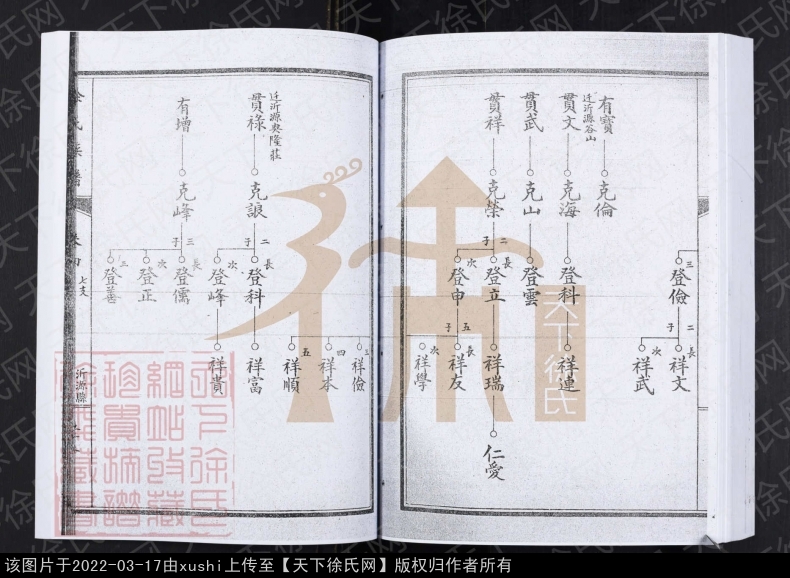 有寶
迁沂源谷山
克倫
貫文
克海
登科
祥連
貫武
克山
登雲
貫祥
克榮
二子
長
登立
祥瑞
仁愛
次
登申
五子
長
祥友
次
祥學
三
登儉
二子
長
祥文
次
祥武
三
祥儉
四
祥本
五
祥順
貫祿
迁沂源興隆莊
克誏
二子
長
登科
祥富
次
登峰
祥貴
有增
克峰
三子
長
登儒
次
登正
三
登善
徐氏族譜
卷四
七支
沂源縣
天下徐氏
天下徐氏网
该图片于2022-03-17由xushi上传至【天下徐氏网】版权归作者所有